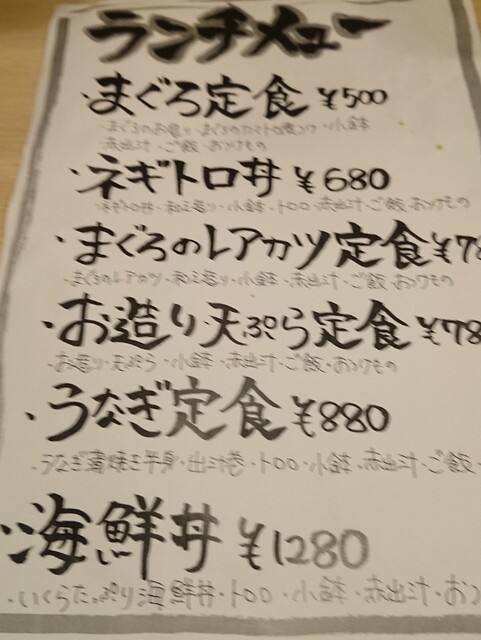 ランチメニュー
・まぐろ定食 ¥500
・まぐろのお造り・まぐろのカマトロ煮つけ・小鉢
赤出汁・ご飯・おつけもの
・ネギトロ丼 ¥680
・ネギトロ丼・お造り・小鉢・トロロ・赤出汁・ご飯・おつけもの
・まぐろのレアカツ定食¥78
・まぐろのレアカツ・お造り・小鉢・赤出汁・ご飯・おつけもの
・お造り・天ぷら定食¥78
・お造り・天ぷら・小鉢・赤出汁・ご飯・おつけもの
・うなぎ定食¥880
・うなぎ蒲焼き半身・出汁巻・トロロ・小鉢・赤出汁・ご飯・
・海鮮丼 ¥1280
・いくらたっぷり海鮮丼・トロロ・小鉢・赤出汁・おつ